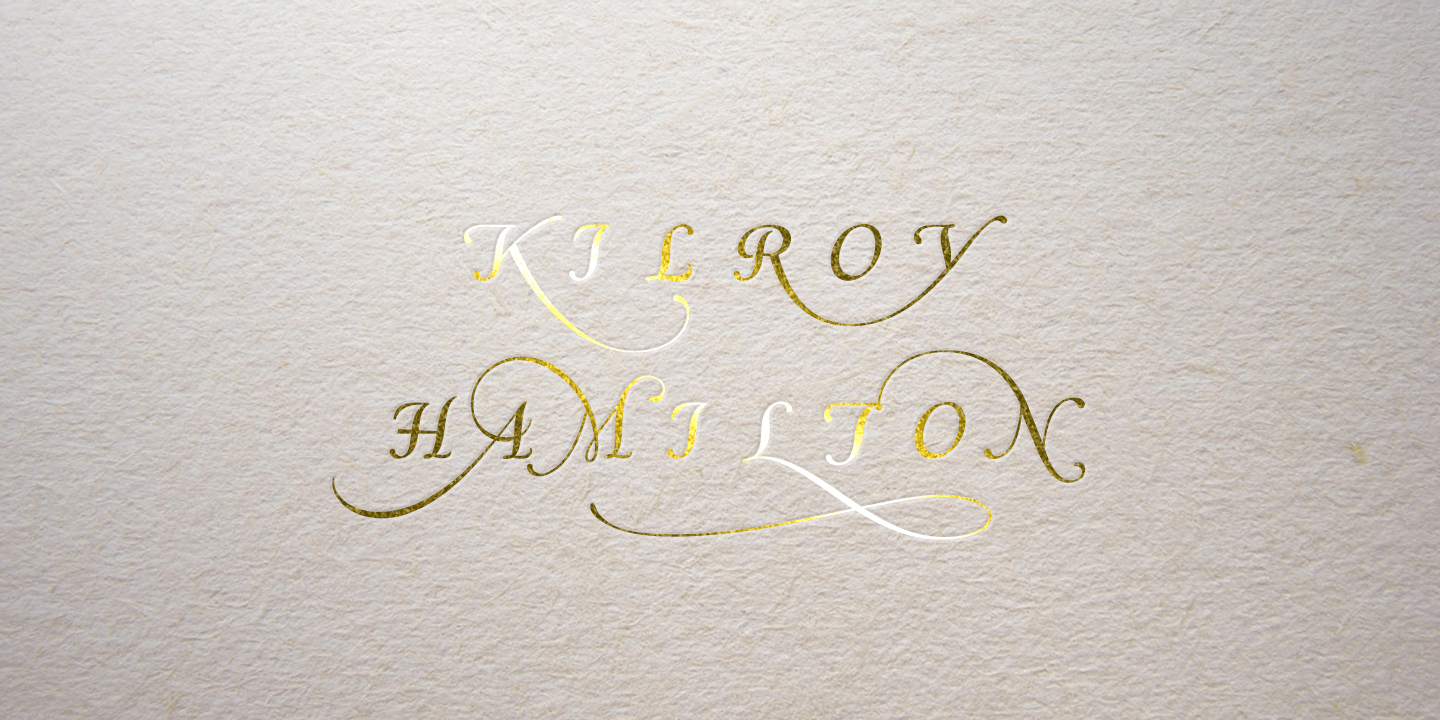 KILROY
HAMILTON